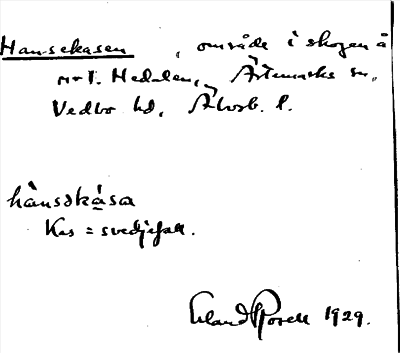 Hansekasen , område i skogen å
mot. Hedalen, Ärtemarks sn,
Vedbo hd, Älvsb. l.
hànsəkása
Kas = svedjefall.
Erland Rosell 1929.